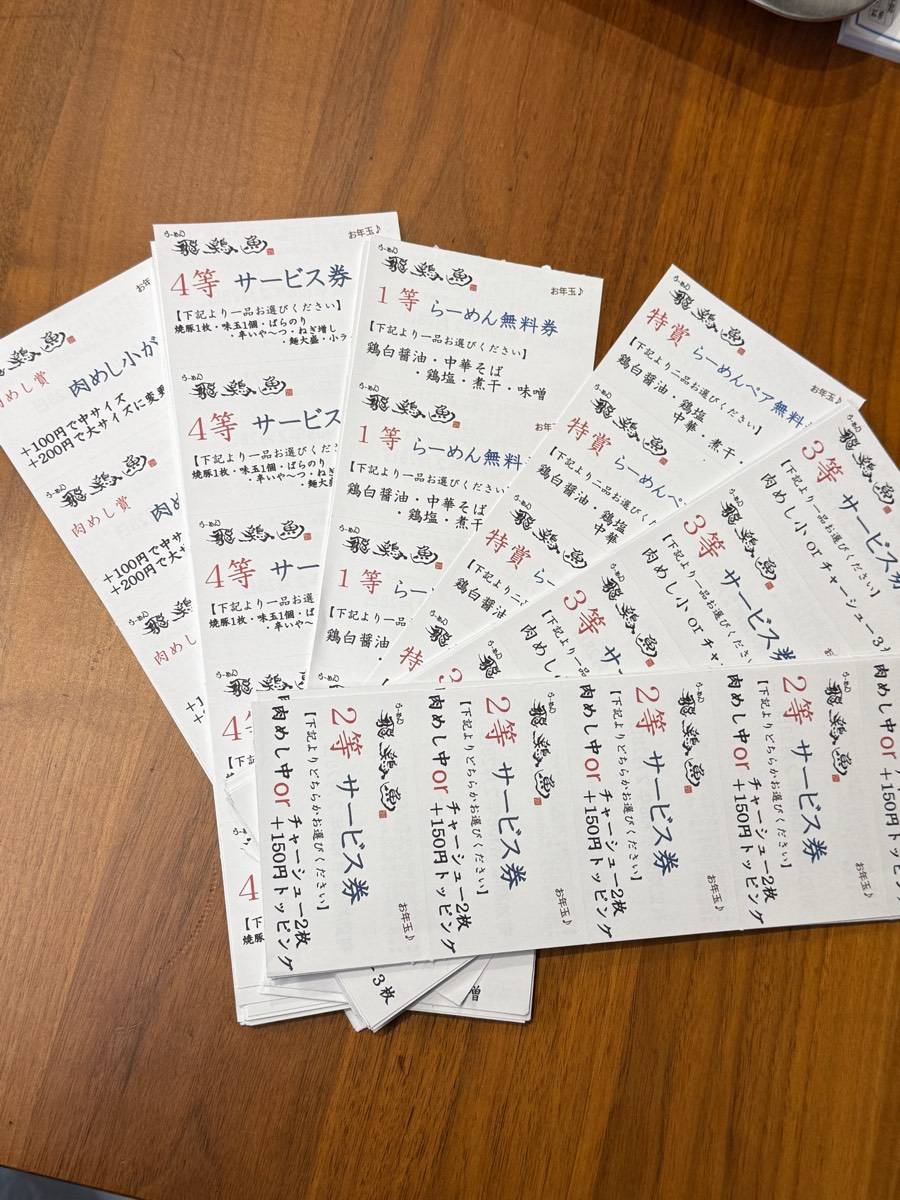 お年
肉めし賞 肉めし小が
+100円で中サイズ
+200円で大サイズに変更
肉めし賞 肉め
+100円で中サ
+200円で大サ
肉めし
らーめん
お年玉♪
4等 サービス券
【下記より一品お選びください】
焼豚1枚・味玉1個・ばらのり
・辛いや〜つ・ねぎ増し
・麺大盛・小ラ
らーめん
4等 サービス
【下記より一品お選びくださ
焼豚1枚・味玉1個・ばらのり
・辛いや〜つ・ねぎ
・麺大
らーめん
4等 サー
【下記より一品お選
焼豚1枚・味玉1個・ば
・辛いや〜
らーめん
4
【下記
4
【下
焼豚
らーめん
お年玉♪
1等 らーめん無料券
【下記より一品お選びください】
鶏白醤油・中華そば
・鶏塩・煮干・味噌
らーめん
お年
1等 らーめん無料
【下記より一品お選びください
鶏白醤油・中華そば
・鶏塩・煮干
らーめん
1等 らー
【下記より一
鶏白醤油
らーめん
お年玉♪
特賞 らーめんペア無料
【下記より二品お選びください】
鶏白醤油・鶏塩
・中華・煮干
らーめん
特賞 らーめんペ
【下記より二品お選びください
鶏白醤油・鶏塩
・中華
らーめん
特賞 らー
【下記より二品
鶏白醤油
らーめん
特
らーめん
3等 サービス
【下記より一品お選びください】
肉めし小 or チャーシュー3
らーめん
3等 サービス券
【下記より一品お選びください
肉めし小 or チャ
らーめん
3等 サー
【下記より一品
肉めし
らーめん
2等 サービス券
【下記よりどちらかお選びください】
肉めし中or チャーシュー2枚
+150円トッピング
お年玉♪
らーめん
2等 サービス券
【下記よりどちらかお選びください】
肉めし中or チャーシュー2枚
+150円トッピング
お年玉♪
らーめん
2等 サービス券
【下記よりどちらかお選びください】
肉めし中or チャーシュー2枚
+150円トッピング
お年玉♪
らーめん
2等 サービス券
【下記よりどちらかお選びください】
肉めし中or チャーシュー2枚
+150円トッピング
お年玉♪
肉めし中or
3枚
噌